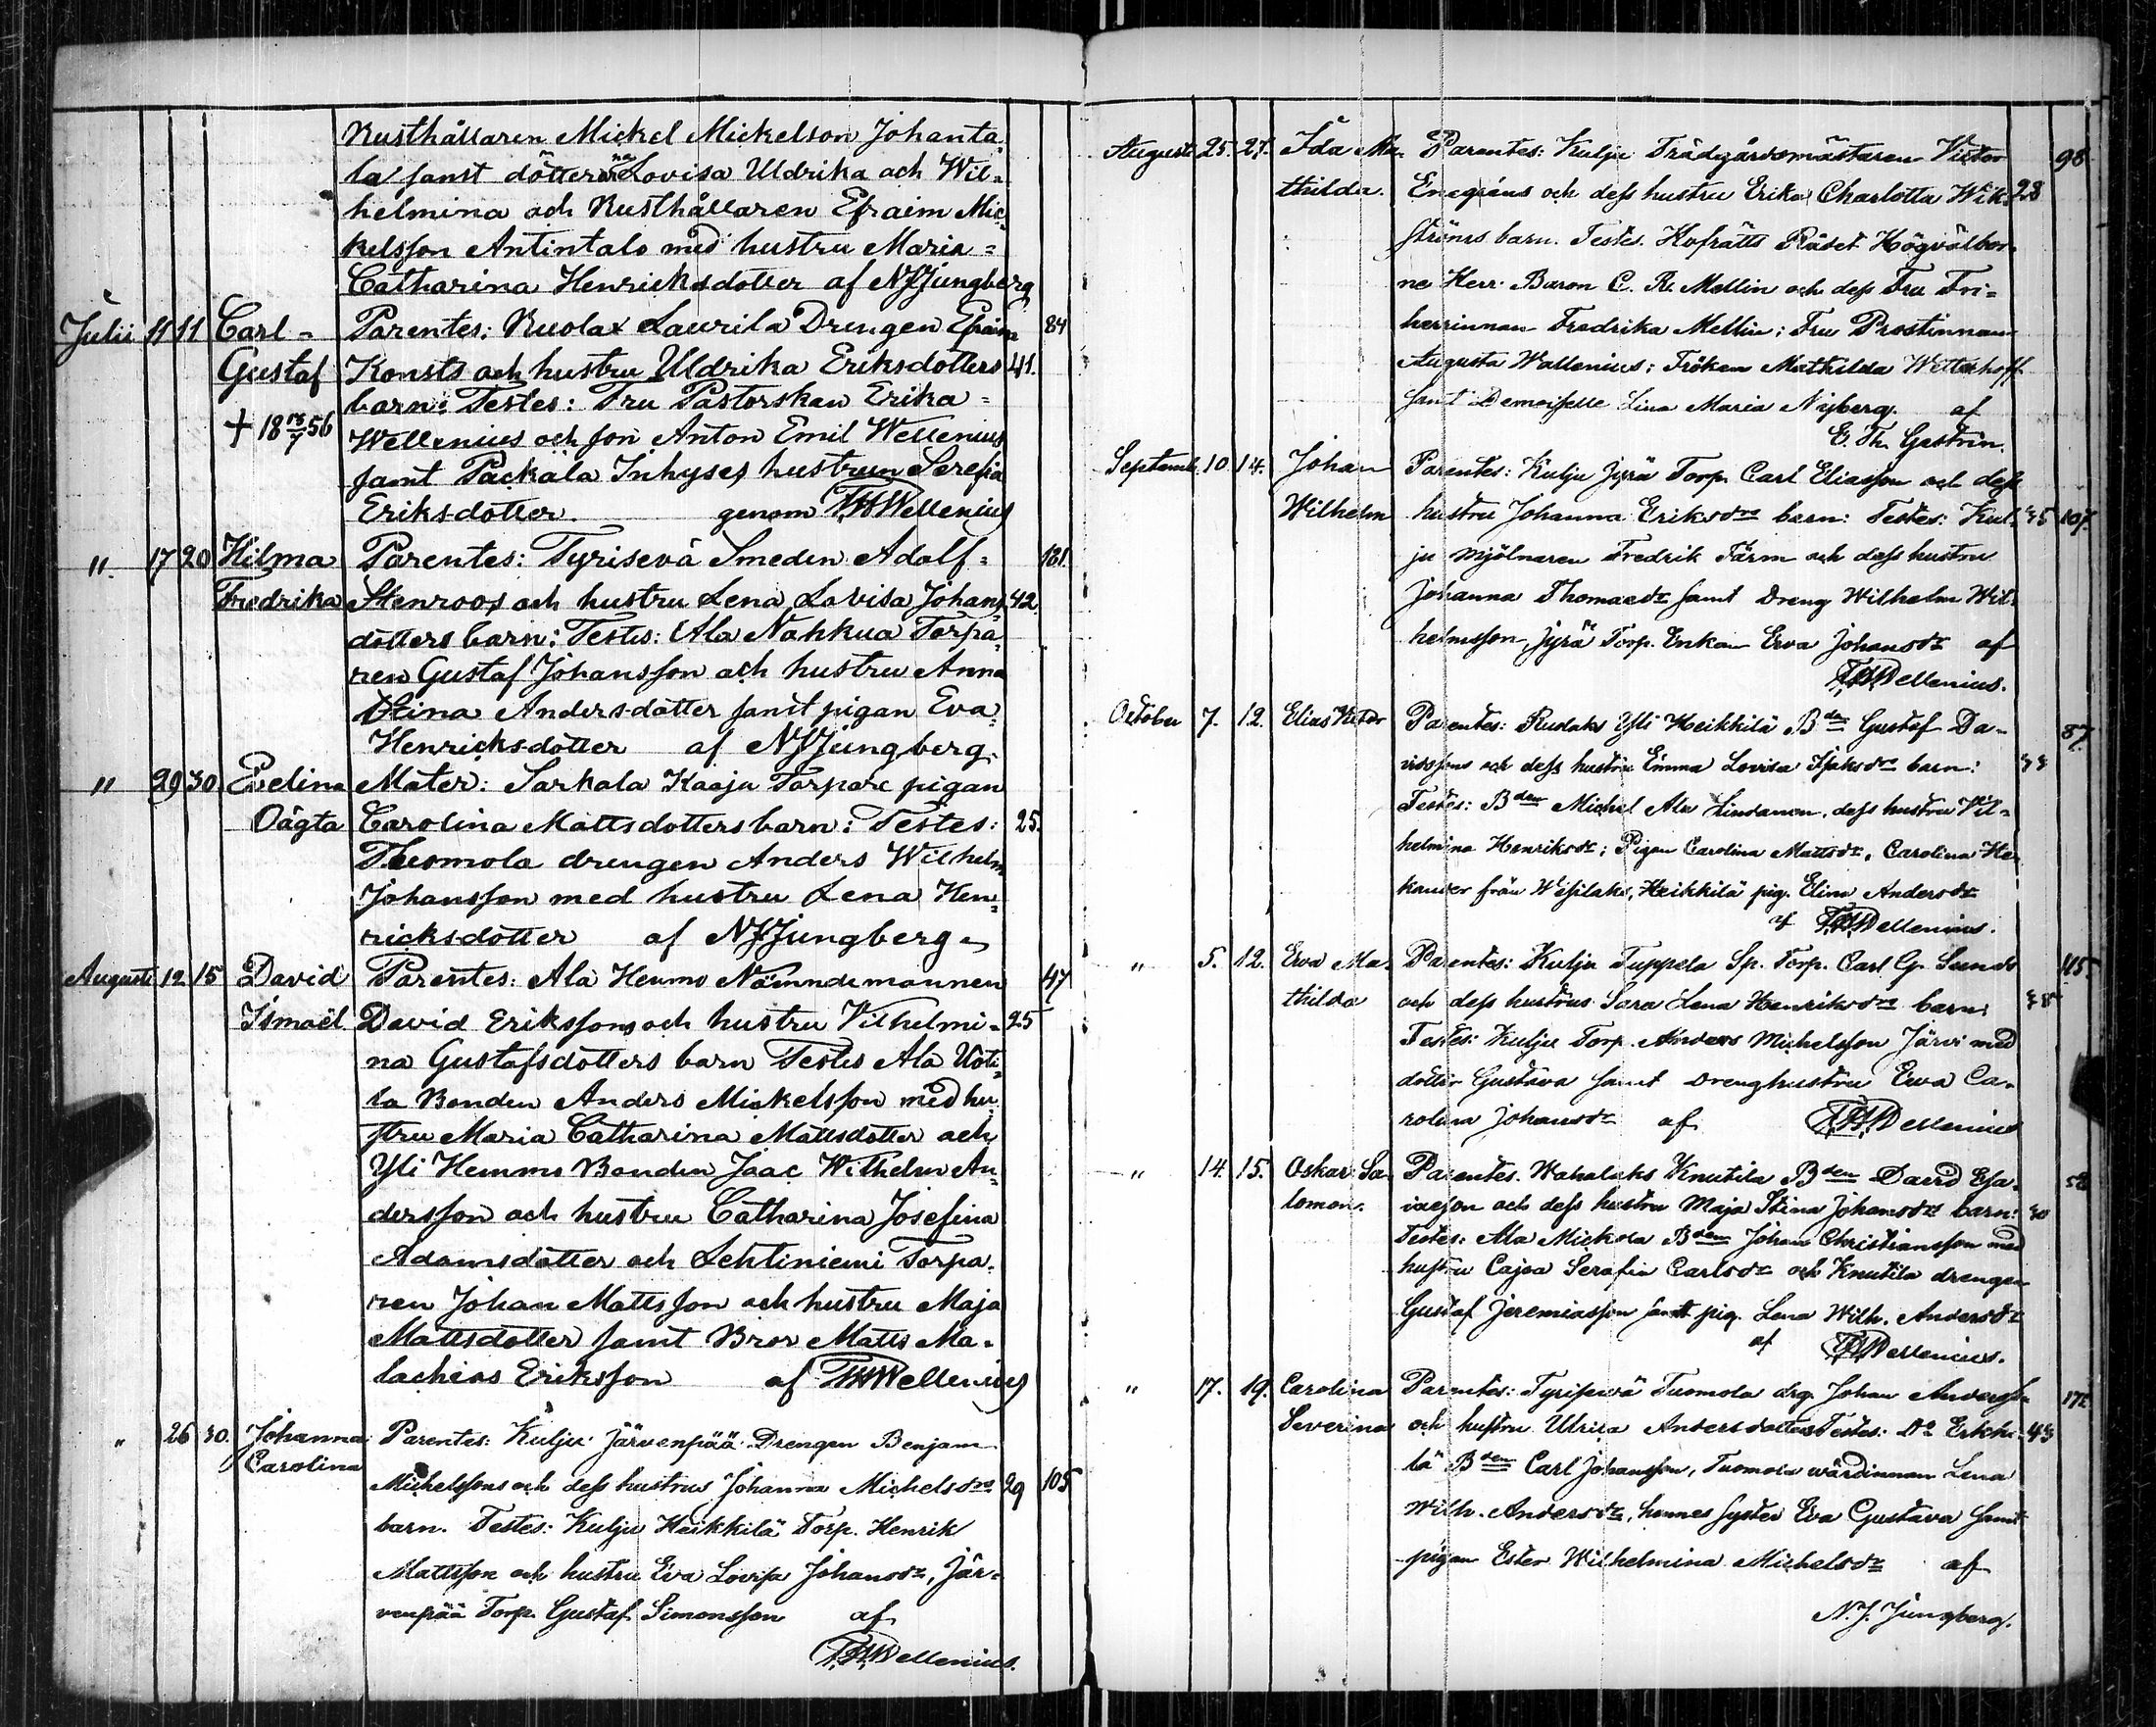 Rusthållaren Mickel Mickelson Johanta
la samt döttrarna Lovisa Uldrika och Wil=
helmina och Rusthållaren Efraim Mic
kelsson Antintalo med hustru Maria=
Catharina Henricksdotter af NJJungberg
Julii 11 11 Carl= Parentes: Kuolax Laurila Drengen Efraim 84
Gustaf Konsts och hustru Uldrika Eriksdotters 41.
barn: Testes: Fru Pastorskan Erika=
+ 18 /7 56 Wellenius och son Anton Emil Wellenius
samt Päckälä Inhyses hustrun Serefia
Eriksdotter genom THWellenius
". 17 20 Hilma Parentes: Tyrisevä Smeden Adolf= 121.
Fredrika Stenroos och hustru Lena Lovisa Johans 42.
dotters barn: Testes: Ala Nahkua Torpa,
ren Gustaf Johansson och hustru Anna
Stina Andersdotter samt pigan Eva
Henricksdotter af NJJungberg.
" 29 30 Evelina Mater: Sarkala Kaaju Torpare pigan
Oägta Carolina Mattsdotters barn: Testes: 25.
Tuomola drengen Anders Wilhelm
Johansson med hustru Lena Hen=
ricksdotter af NJJungberg
Augusti 12 15 David Parentes: Ala Hemmo Nämndemannen 47
Ismaël David Erikssons och hustru Vilhelmi= 25
na Gustafsdotters barn Testes Ala Uoti
la Bonden Anders Mickelsson med hu
stru Maria Catharina Mattsdotter och
Yli Hemmo Bonden Isac Wilhelm An
dersson och hustru Catharina Josefina
Adamsdotter och Lehtiniemi Torpa.
ren Johan Mattsson och hustru Maja
Mattsdotter samt Bror Matts Ma=
lachias Eriksson af THWellenius
" 26 30. Johanna Parentes: Kulju Järvenpää Drengen Benjam
Carolina Michelssons och dess hustrus Johanna Michelsdrs 29 105
barn. Testes: Kulju Heikkilä Torp. Henrik
Mattsson och hustru Eva Lovisa Johansdr, Jär=
venpää Torp. Gustaf Simonsson af
THWellenius.
Augusti 25. 27. Ida Ma- Parentes: Kulju Trädgårdsmästaren Victor 98
thilda. Enegréns och dess hustru Erika Charlotta Wik- 28
ströms barn. Testes. Hofrätts Rådet Högvälbor-
ne Herr Baron C. R. Mellin och dess Fru Fri=
herrinnan Fredrika Mellin; Fru Prostinnan
Augusta Wallenius; Fröken Mathilda Wetterhoff
samt Demoiselle Lina Maria Nyberg. af
E. Th. Gestrin.
Septemb. 10. 14. Johan Parentes: Kulju Jyrä Torp. Carl Eliasson och dess
Wilhelm hustru Johanna Eriksdrs barn: Testes: Kul- 35 107.
ju mjölnaren Fredrik Färm och dess hustru
Johanna Thomasdr samt Dreng Wilhelm Wil-
helmsson, Jyrä Torp. Enkan Erva Johansdr af
THWellenius.
October 7. 12. Elias Victor Parentes: Ruolaks Yli Heikkilä Bden Gustaf Da- 87.
vidssons och dess hustru Emma Lovisa Isaksdrs barn: 33
Testes: Bden Michel Ala Lindanen, dess hustru Vil=
helmina Henriksdr; Pigan Carolina Mattsdr, Carolina He
från Wesilaks, Heikkilä pig. Elina Andersdr
af THWellenius.
" 5. 12. Erva Ma- Parentes: Kulju Tuppela Sp. Torp. Carl G. Lunds 115.
thilda och dess hustrus Sara Lena Henriksdrs barn: 38
Testes: Kulju Torp. Anders Michelsson Järvi med
dotter Gustava samt Drenghustru Erva Ca-
rolina Johansdr af THWellenius
" 14. 15. Oskar Sa- Parentes. Wahalaks Knutila Bden David Esa- 52
lomon. iasson och dess hustru Maja Stina Johansdrs barn: 30
Testes: Ala Mickola Bden Johan Christiansson med
hustru Cajsa Serafia Carlsdr och Knutila drengen
Gustaf Jeremiasson samt pig. Lena Wilh. Andersdr
af THWellenius.
" 17. 19. Carolina Parentes: Tyrisevä Tuomola drg. Johan Andersson 172
Severina och hustru Ulrica Andersdotters Testes: Do Erkki- 43
lä Bden Carl Johansson, Tuomola wärdinnan Lena
Wilh. Andersdr, hennes syster Eva Gustava samt
pigan Ester Wilhelmina Michelsdr af
N.J. Jungberg.